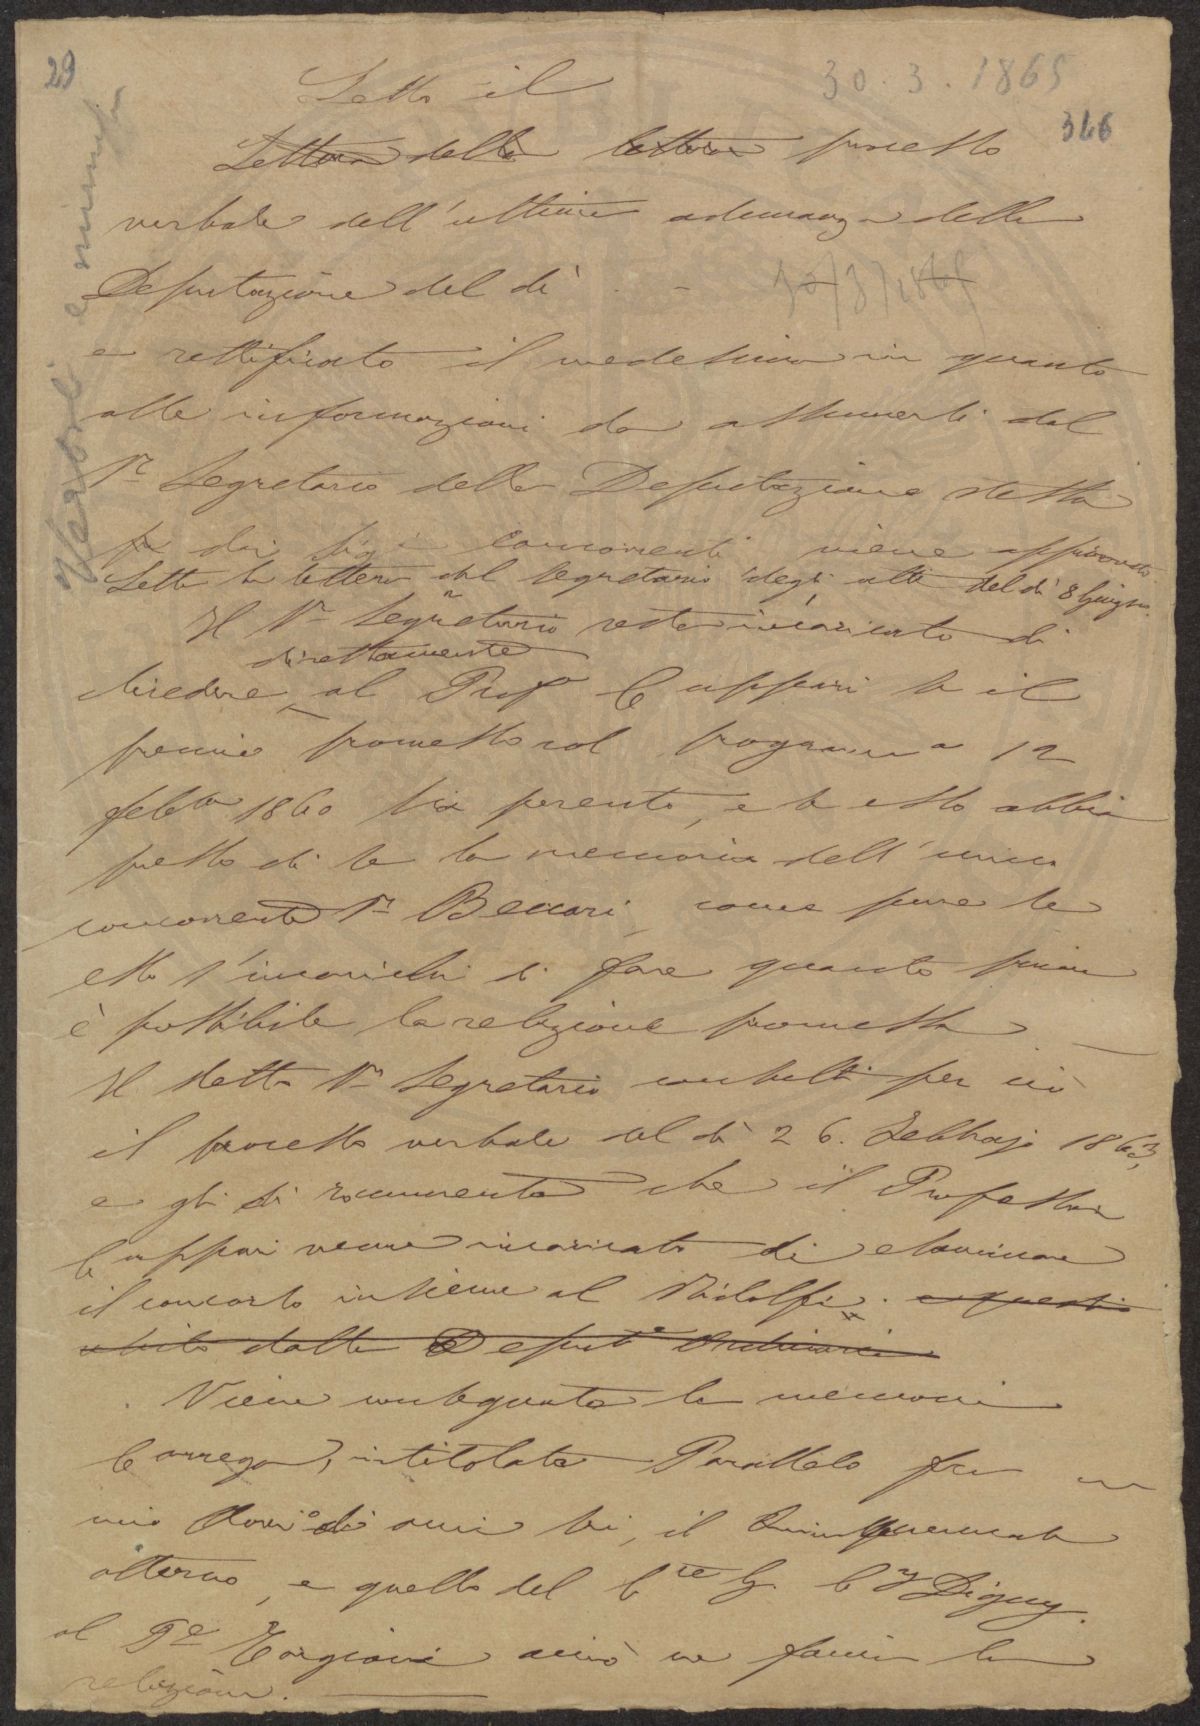 29
30.3.1865
346
Verbali e minute
Letto il
Lettura della lettera processo
verbale dell'ultima adunanza della
Deputazione del dì
e rettificato il medesimo in quanto
alle informazioni da assumersi dal
Sr Segretario della Deputazione stessa
dei Sigi concorrenti viene approvato
Letta la lettera del Segretario degli atti del dì 8 Giugno.
Il Sr Segretario resta incaricato di
direttamente
chiedere al Profe Cuppari se il
premio promesso col programma 12
febbo 1860 sia perento, e se esso abbia
presso di se la memoria dell'unico
concorrente Sr Beccari, come pure se
esso s'incarichi di fare quanto prima
è possibile la relazione promessa
Il detto Sr Segretario consulti per ciò
il processo verbale del dì 26. Febbrajo 1863,
e gli di rammenta che il Professor
Cuppari venne incaricato di esaminare
il concorso insieme al Ridolfi. e questi
dalla Depute Ordinaria
Viene consegnata la memoria
Carrega, intitolata Parallelo fra un
mio di anni sei, il Quinquennale
alterno, e quello del Cte G. Cy Digny.
al Pe Targioni acciò ne faccia la
relazione.